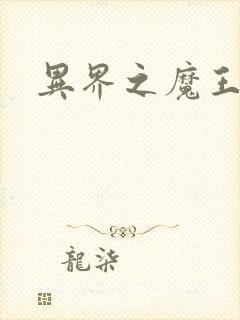 異界之魔王
龍柒